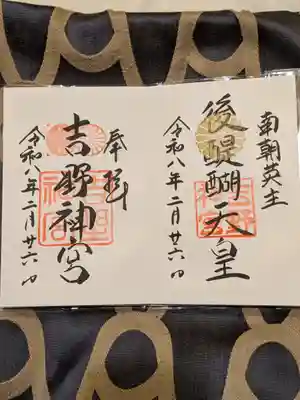 南朝英主
後醍醐天皇
令和八年二月廿六日
奉拝
吉野神宮
令和八年二月廿六日